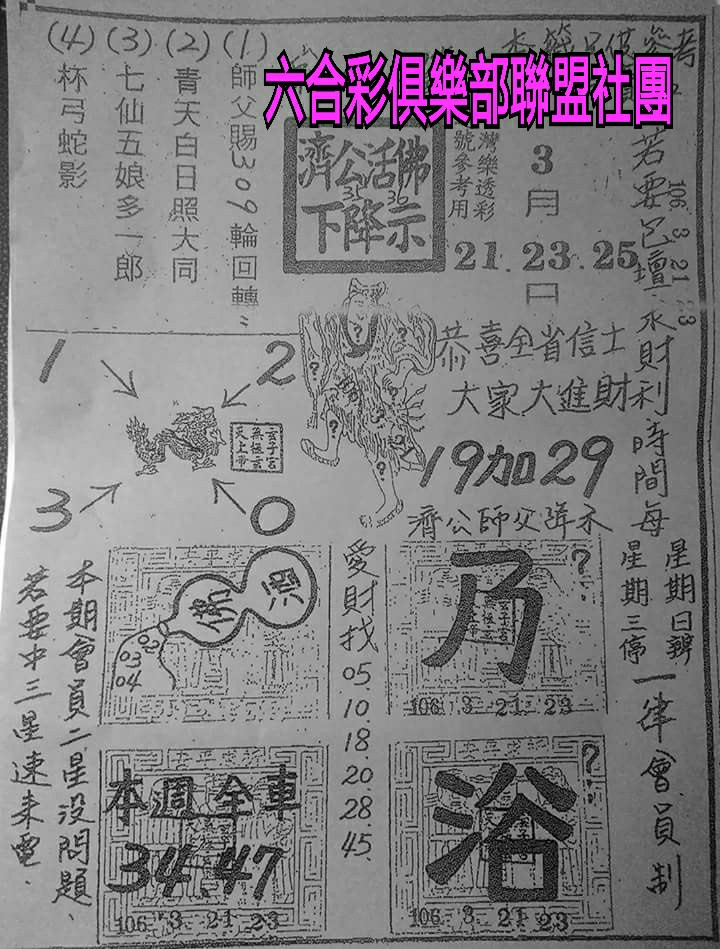 六合彩俱樂部聯盟社團
(1) 師父賜309輪回轉
(2) 青天白日照大同
(3) 七仙五娘多一郎
(4) 杯弓蛇影
濟公活佛
31 36
下降示
灣樂透彩
號參考用
3
月
21.23.25
日
106 3 21 23
若要包壇求財利時間每
星期日辦
星期三停
一律會員制
恭喜全省信士
大家大進財
19加29
濟公師父降示
1
2
3
0
玄子宮
無極玄
天上帝
佛
酒
02
03
04
愛財找
05.
10.
18.
20.
28.
45.
乃
?
106 3 21 23
本週全車
34.47
106 3 21 23
浴
?
106 3 21 23
本期會員二星沒問題、
若要中三星速來電.